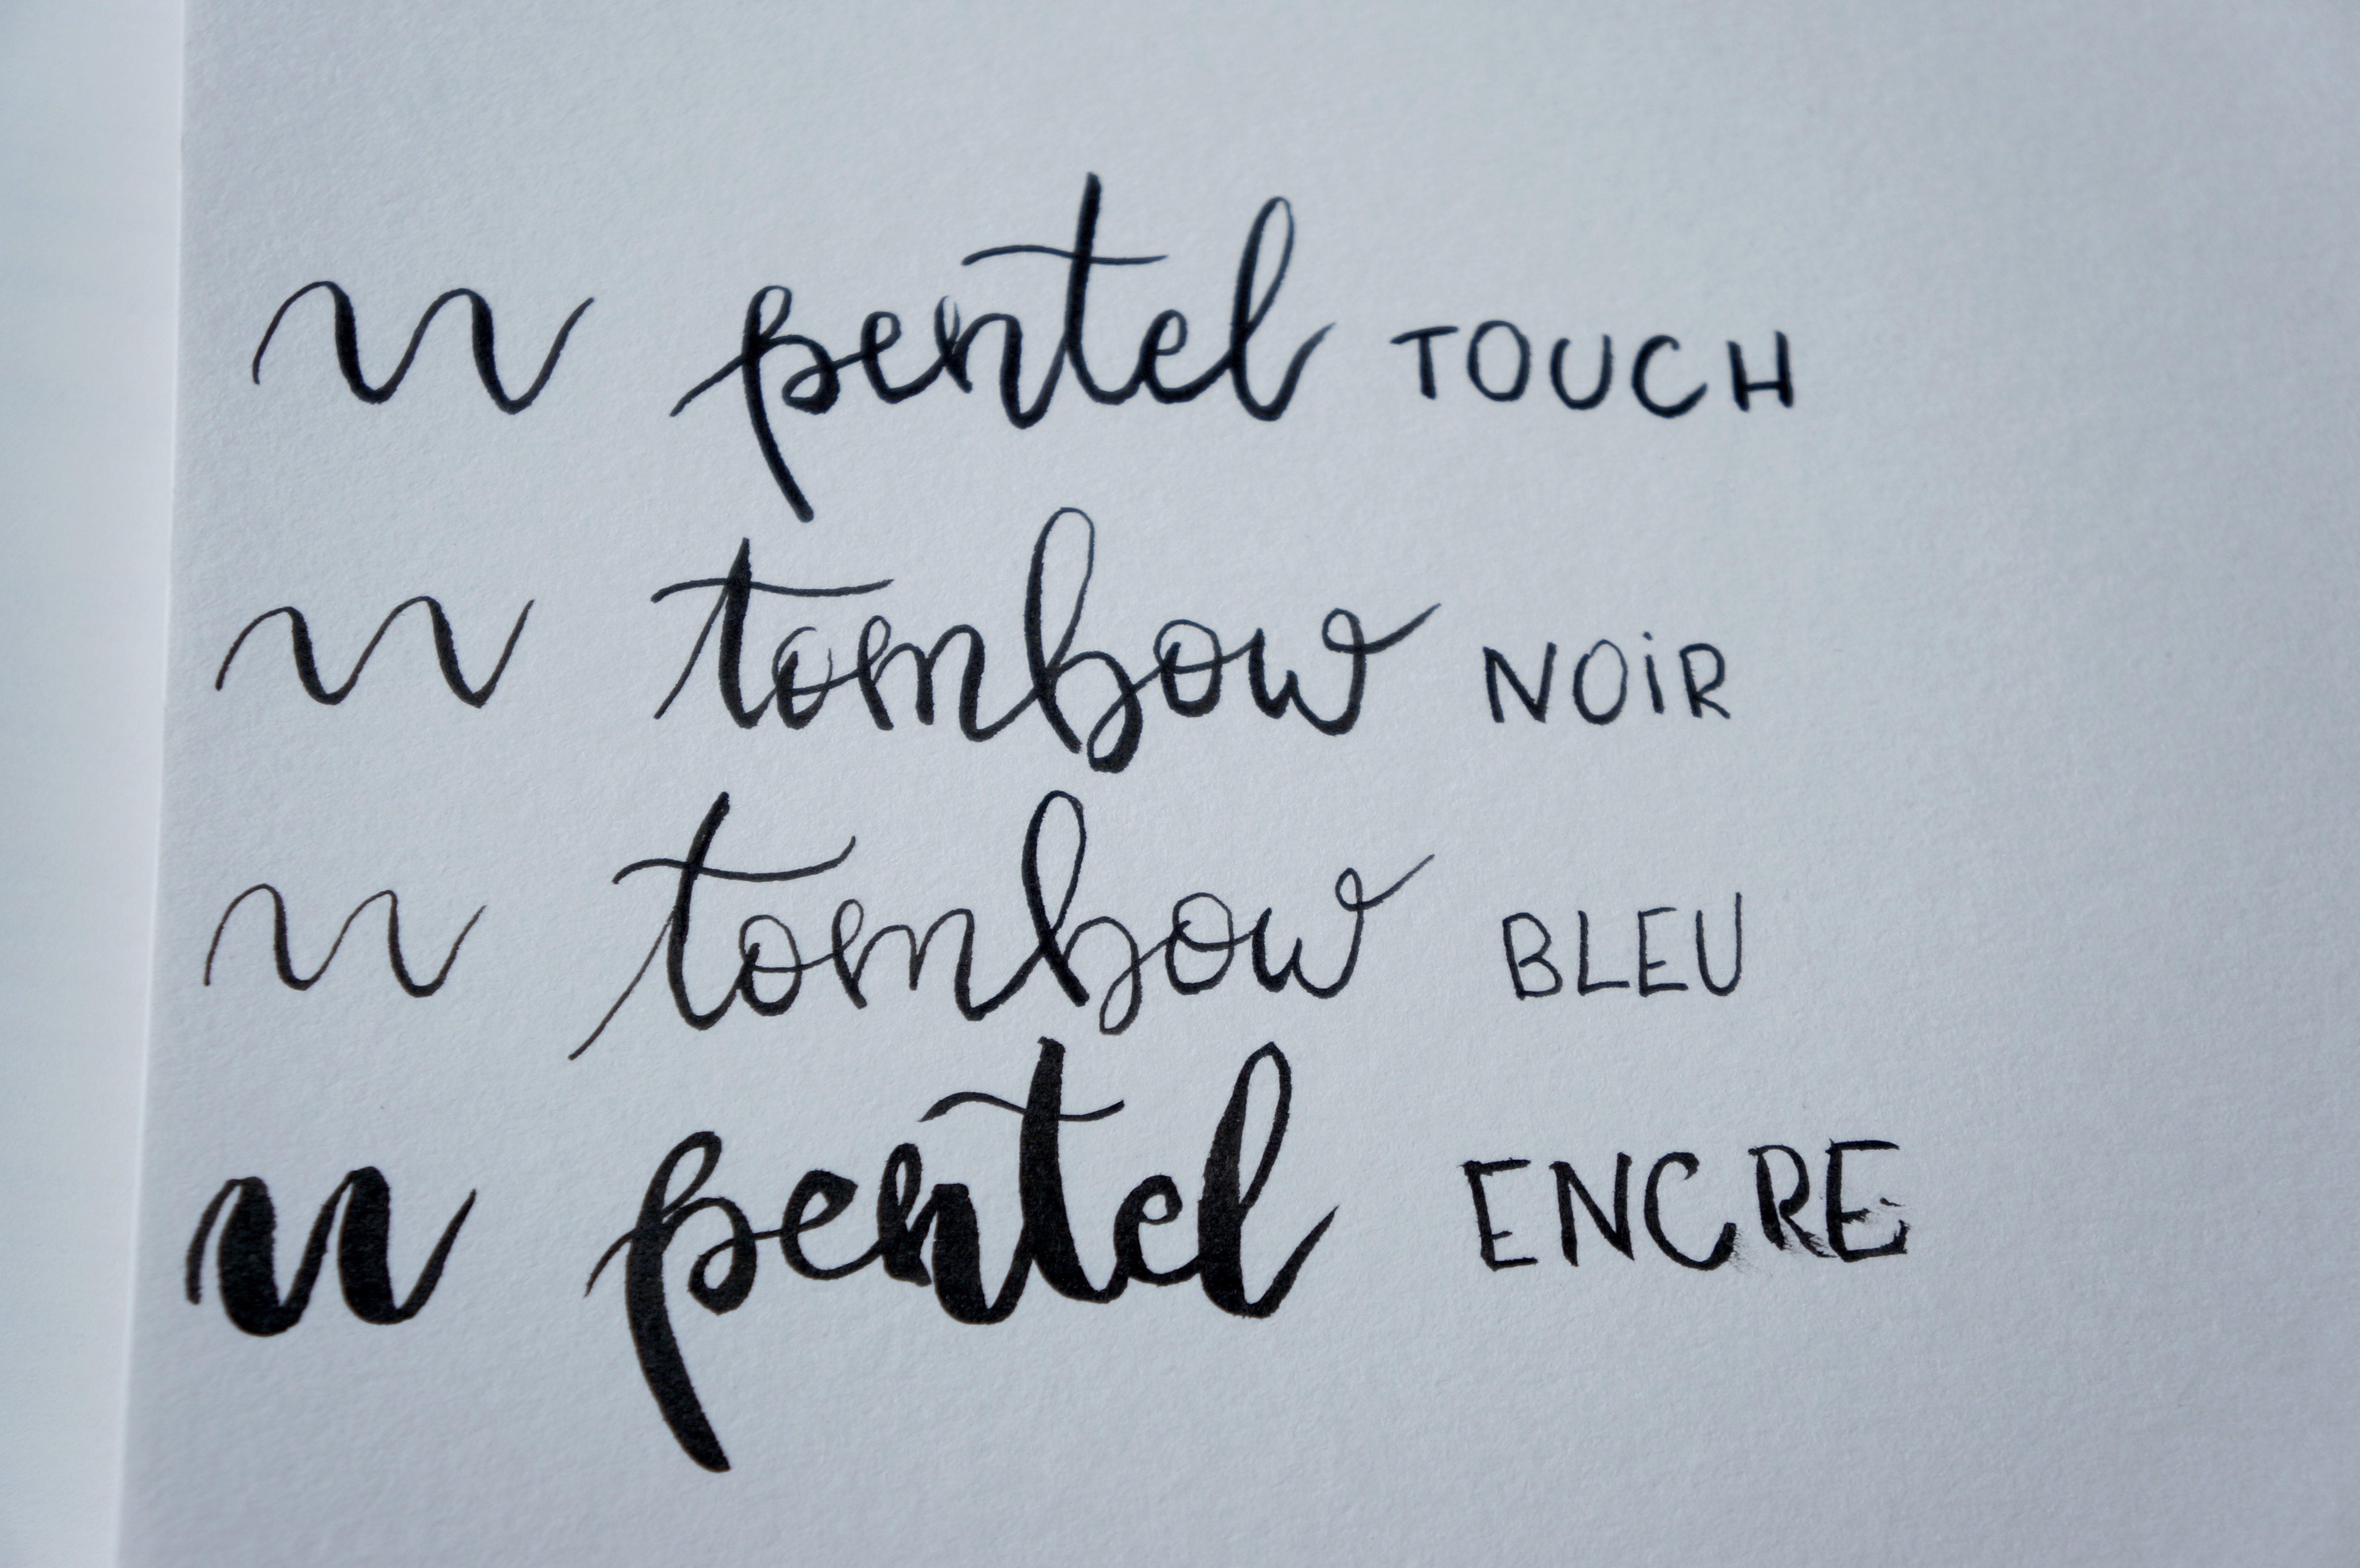 pentel TOUCH
tombow NOiR
tombow BLEU
pentel ENCRE